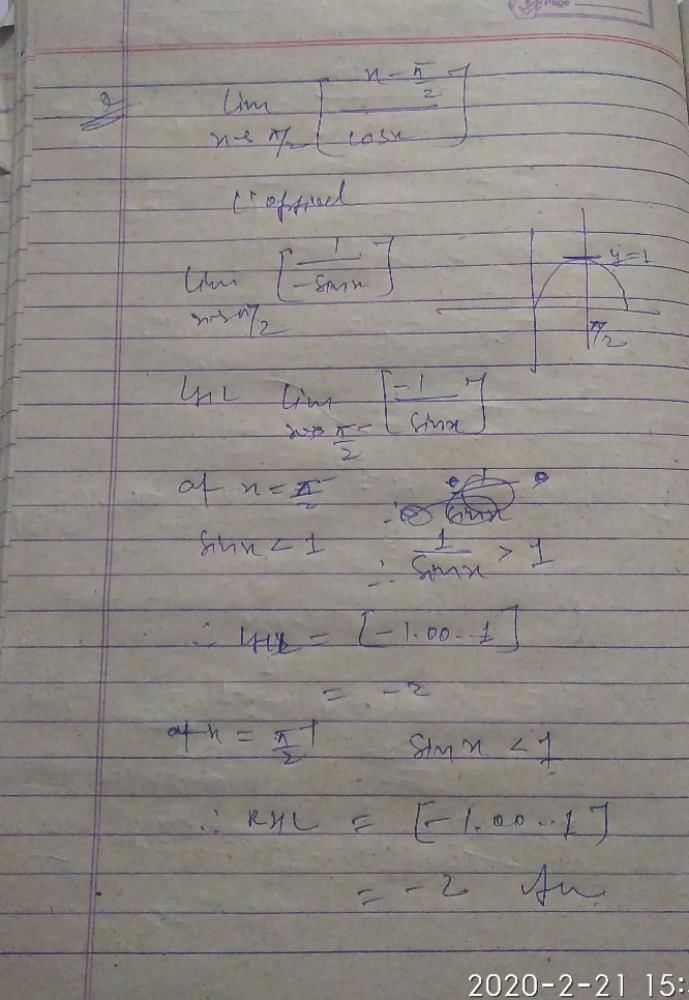 Page
Q
lim x→π/2 [ (x - π/2) / cosx ]
lim x→π/2 [ 1 / -sinx ]
y=1
π/2
LHL lim x→π/2⁻ [ -1 / sinx ]
at x = π/2⁻
sinx < 1 ∴ 1/sinx > 1
∴ LHL = [-1.00..1]
= -2
at x = π/2⁺ sinx < 1
∴ RHL = [-1.00..1]
= -2 Ans.
2020-2-21 15: